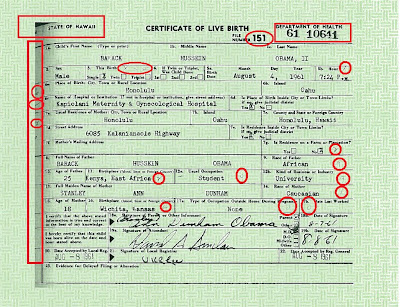 STATE OF HAWAII
CERTIFICATE OF LIVE BIRTH
DEPARTMENT OF HEALTH
FILE NUMBER 151
61 10641
1a. Child's First Name (Type or print) 1b. Middle Name 1c. Last Name
BARACK HUSSEIN OBAMA, II
2. Sex 3. This Birth 4. If Twin or Triplet, Was Child Born 5a. Birth Date Month Day Year 5b. Hour
Male Single X Twin Triplet August 4, 1961 7:24 P.M.
6a. Place of Birth: City, Town or Rural Location 6b. Island
Honolulu Oahu
6c. Name of Hospital or Institution (If not in hospital or institution, give street address) 6d. Is Place of Birth Inside City or Town Limits?
If no, give judicial district
Kapiolani Maternity & Gynecological Hospital Yes No
7a. Usual Residence of Mother: City, Town or Rural Location 7b. Island 7c. County and State or Foreign Country
Honolulu Oahu Honolulu, Hawaii
7d. Street Address 7e. Is Residence Inside City or Town Limits?
If no, give judicial district
6085 Kalanianaole Highway Yes No
7f. Mother's Mailing Address 7g. Is Residence on a Farm or Plantation?
Yes No
8. Full Name of Father 9. Race of Father
BARACK HUSSEIN OBAMA African
10. Age of Father 11. Birthplace 12a. Usual Occupation 12b. Kind of Business or Industry
25 Kenya, East Africa Student University
13. Full Maiden Name of Mother 14. Race of Mother
STANLEY ANN DUNHAM Caucasian
15. Age of Mother 16. Birthplace 17a. Type of Occupation Outside Home During Pregnancy 17b. Date Last Worked
18 Wichita, Kansas None
I certify that the above stated information is true and correct to the best of my knowledge.
18a. Signature of Parent or Other Informant 18b. Date of Signature
Ann Dunham Obama 8-7-61
I hereby certify that this child was born alive on the date and hour stated above.
19a. Signature of Attendant M.D. D.O. Midwife Other 19b. Date of Signature
8-8-61
20. Date Accepted by Local Reg. 21. Signature of Local Registrar 22. Date Accepted by Reg. General
AUG -8 1961 AUG -8 1961
23. Evidence for Delayed Filing or Alteration